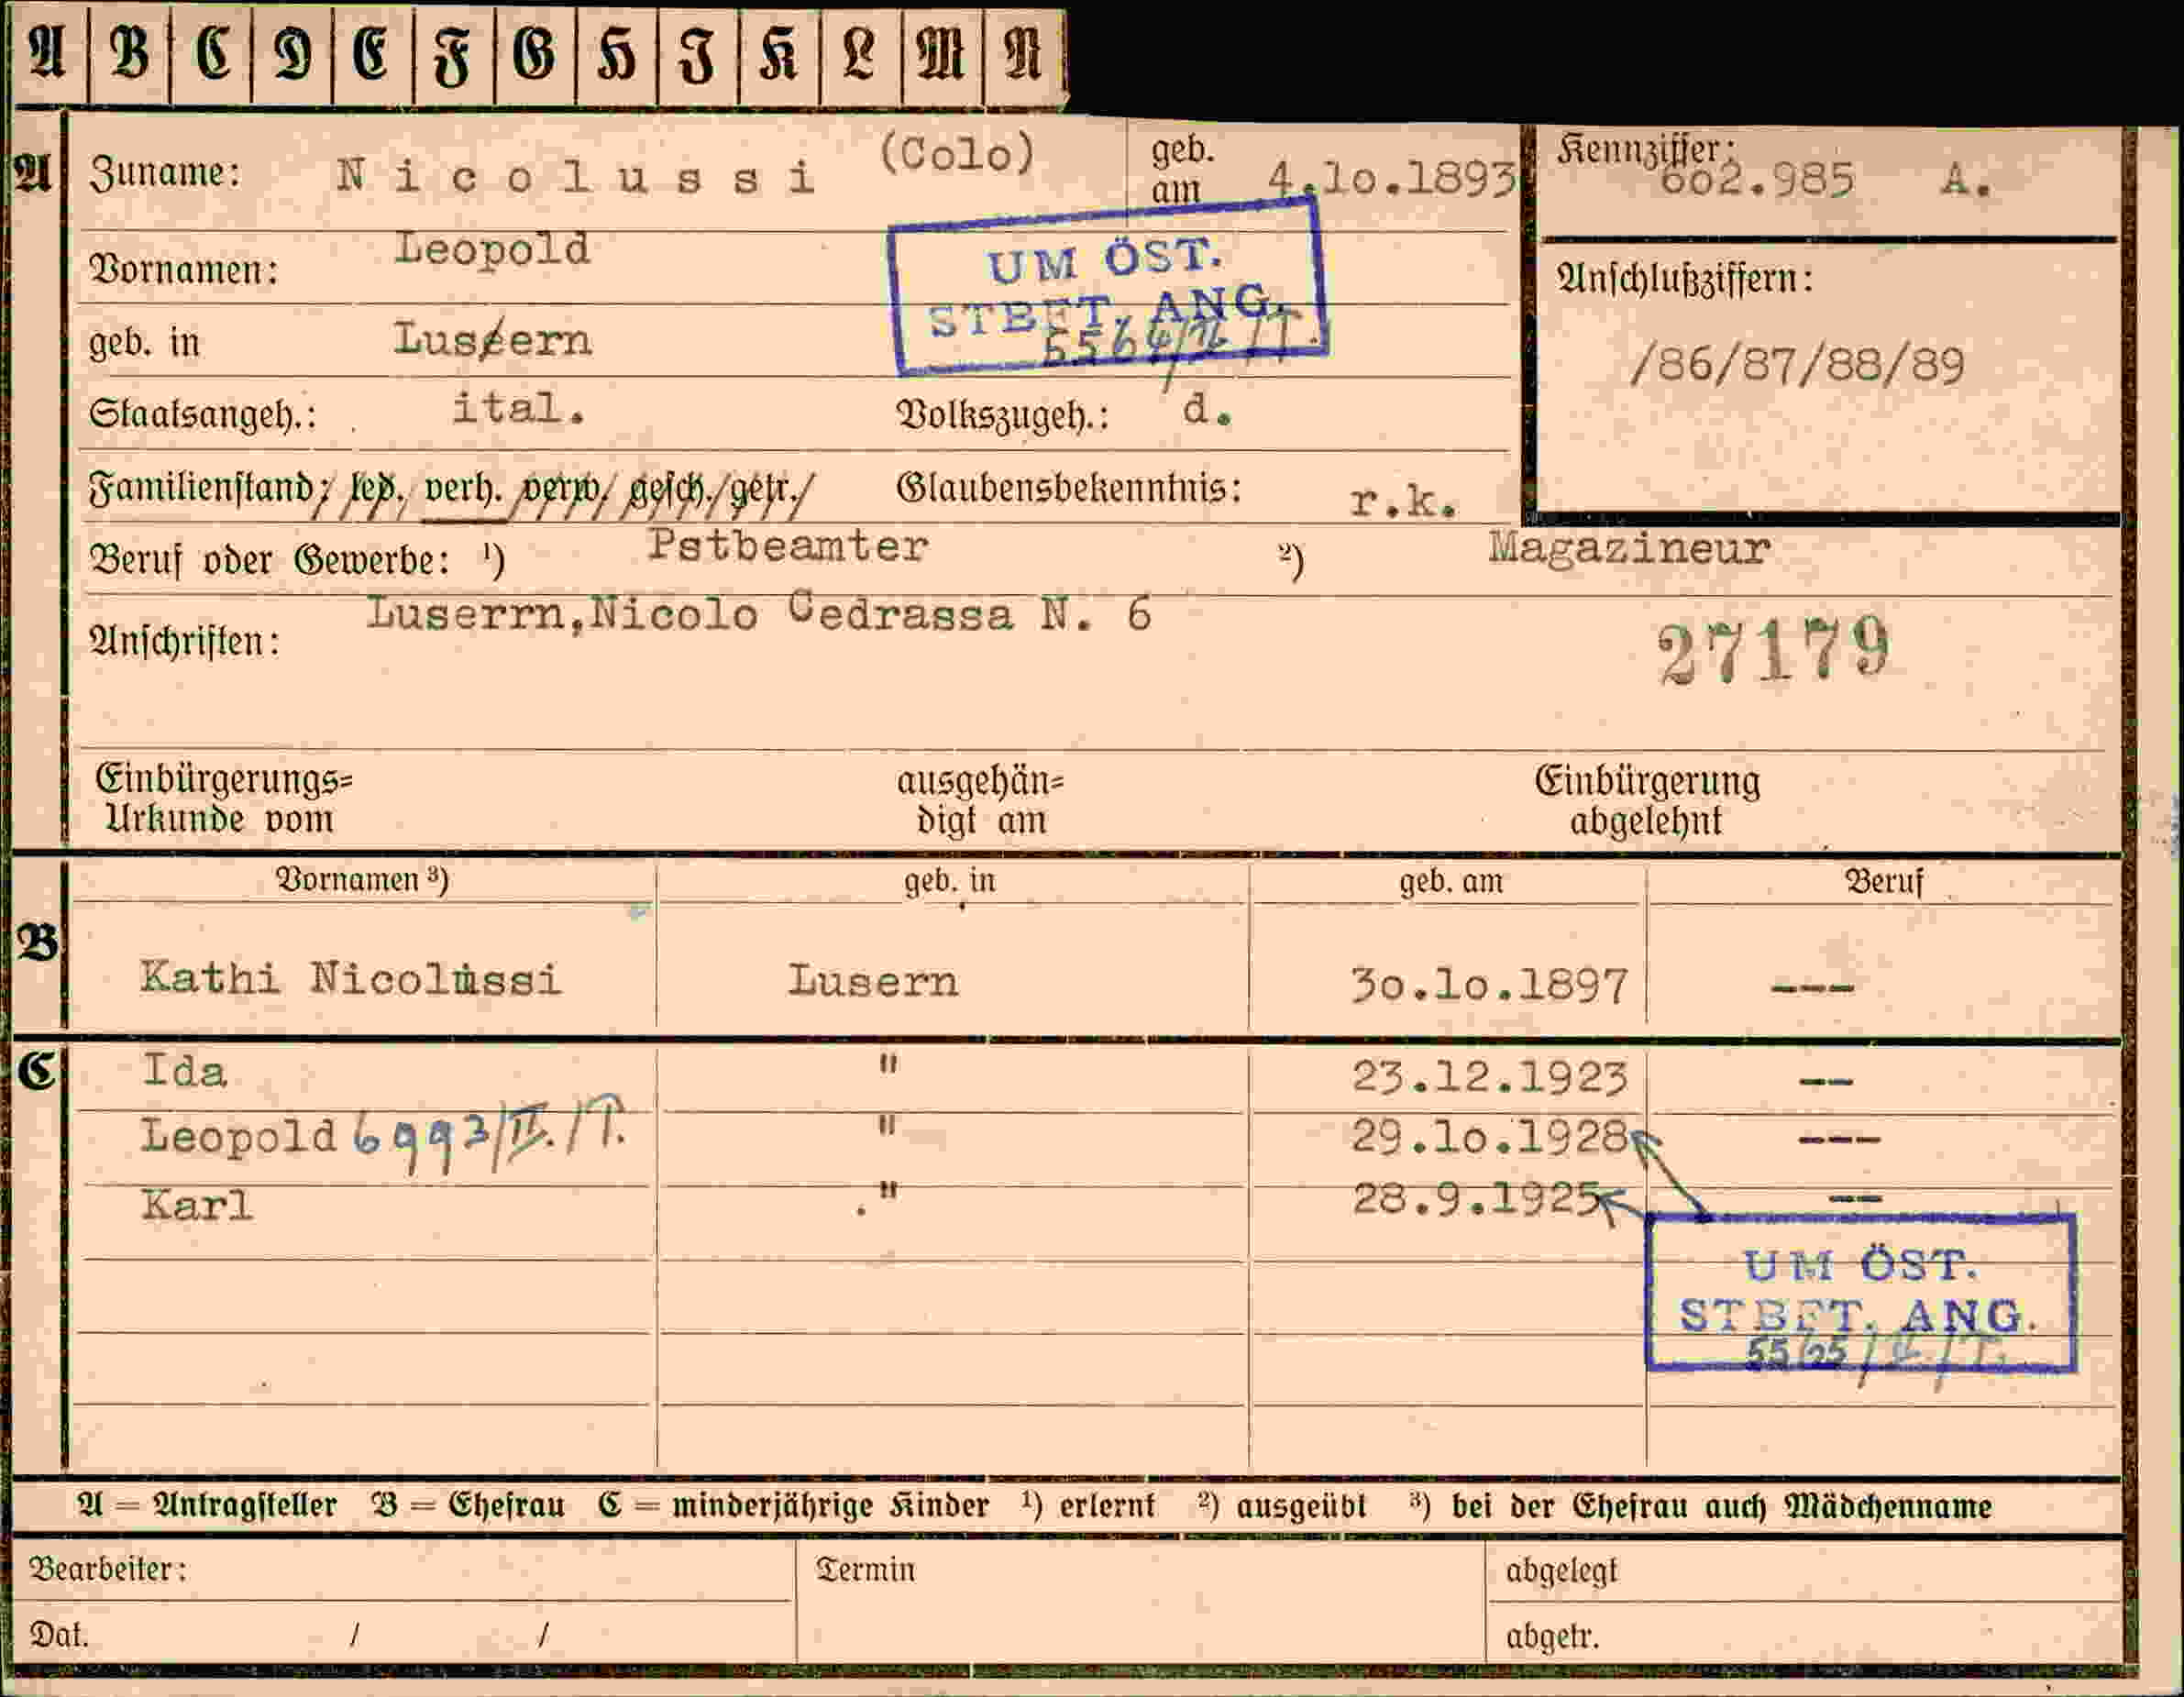 A B C D E F G H J K L M N
A Zuname: Nicolussi (Colo) geb. am 4.10.1893 Kennziffer: 602.985 A.
Vornamen: Leopold
UM ÖST.
STBFT. ANG.
geb. in Lusern
Anschlußziffern:
/86/87/88/89
Staatsangeh.: ital. Volkszugeh.: d.
Familienstand: led. verh. verw. gesch./getr. Glaubensbekenntnis: r.k.
Beruf oder Gewerbe: ¹) Pstbeamter ²) Magazineur
Anschriften: Luserrn,Nicolo Cedrassa N. 6
27179
Einbürgerungs= ausgehän= Einbürgerung
Urkunde vom digt am abgelehnt
B Vornamen ³) geb. in geb. am Beruf
Kathi Nicolussi Lusern 30.10.1897 ---
C Ida " 23.12.1923 --
Leopold 6993/II./T. " 29.10.1928 ---
Karl " 28.9.1925 --
UM ÖST.
STBFT. ANG.
A = Antragsteller B = Ehefrau C = minderjährige Kinder ¹) erlernt ²) ausgeübt ³) bei der Ehefrau auch Mädchenname
Bearbeiter: Termin abgelegt
Dat. / / abgetr.